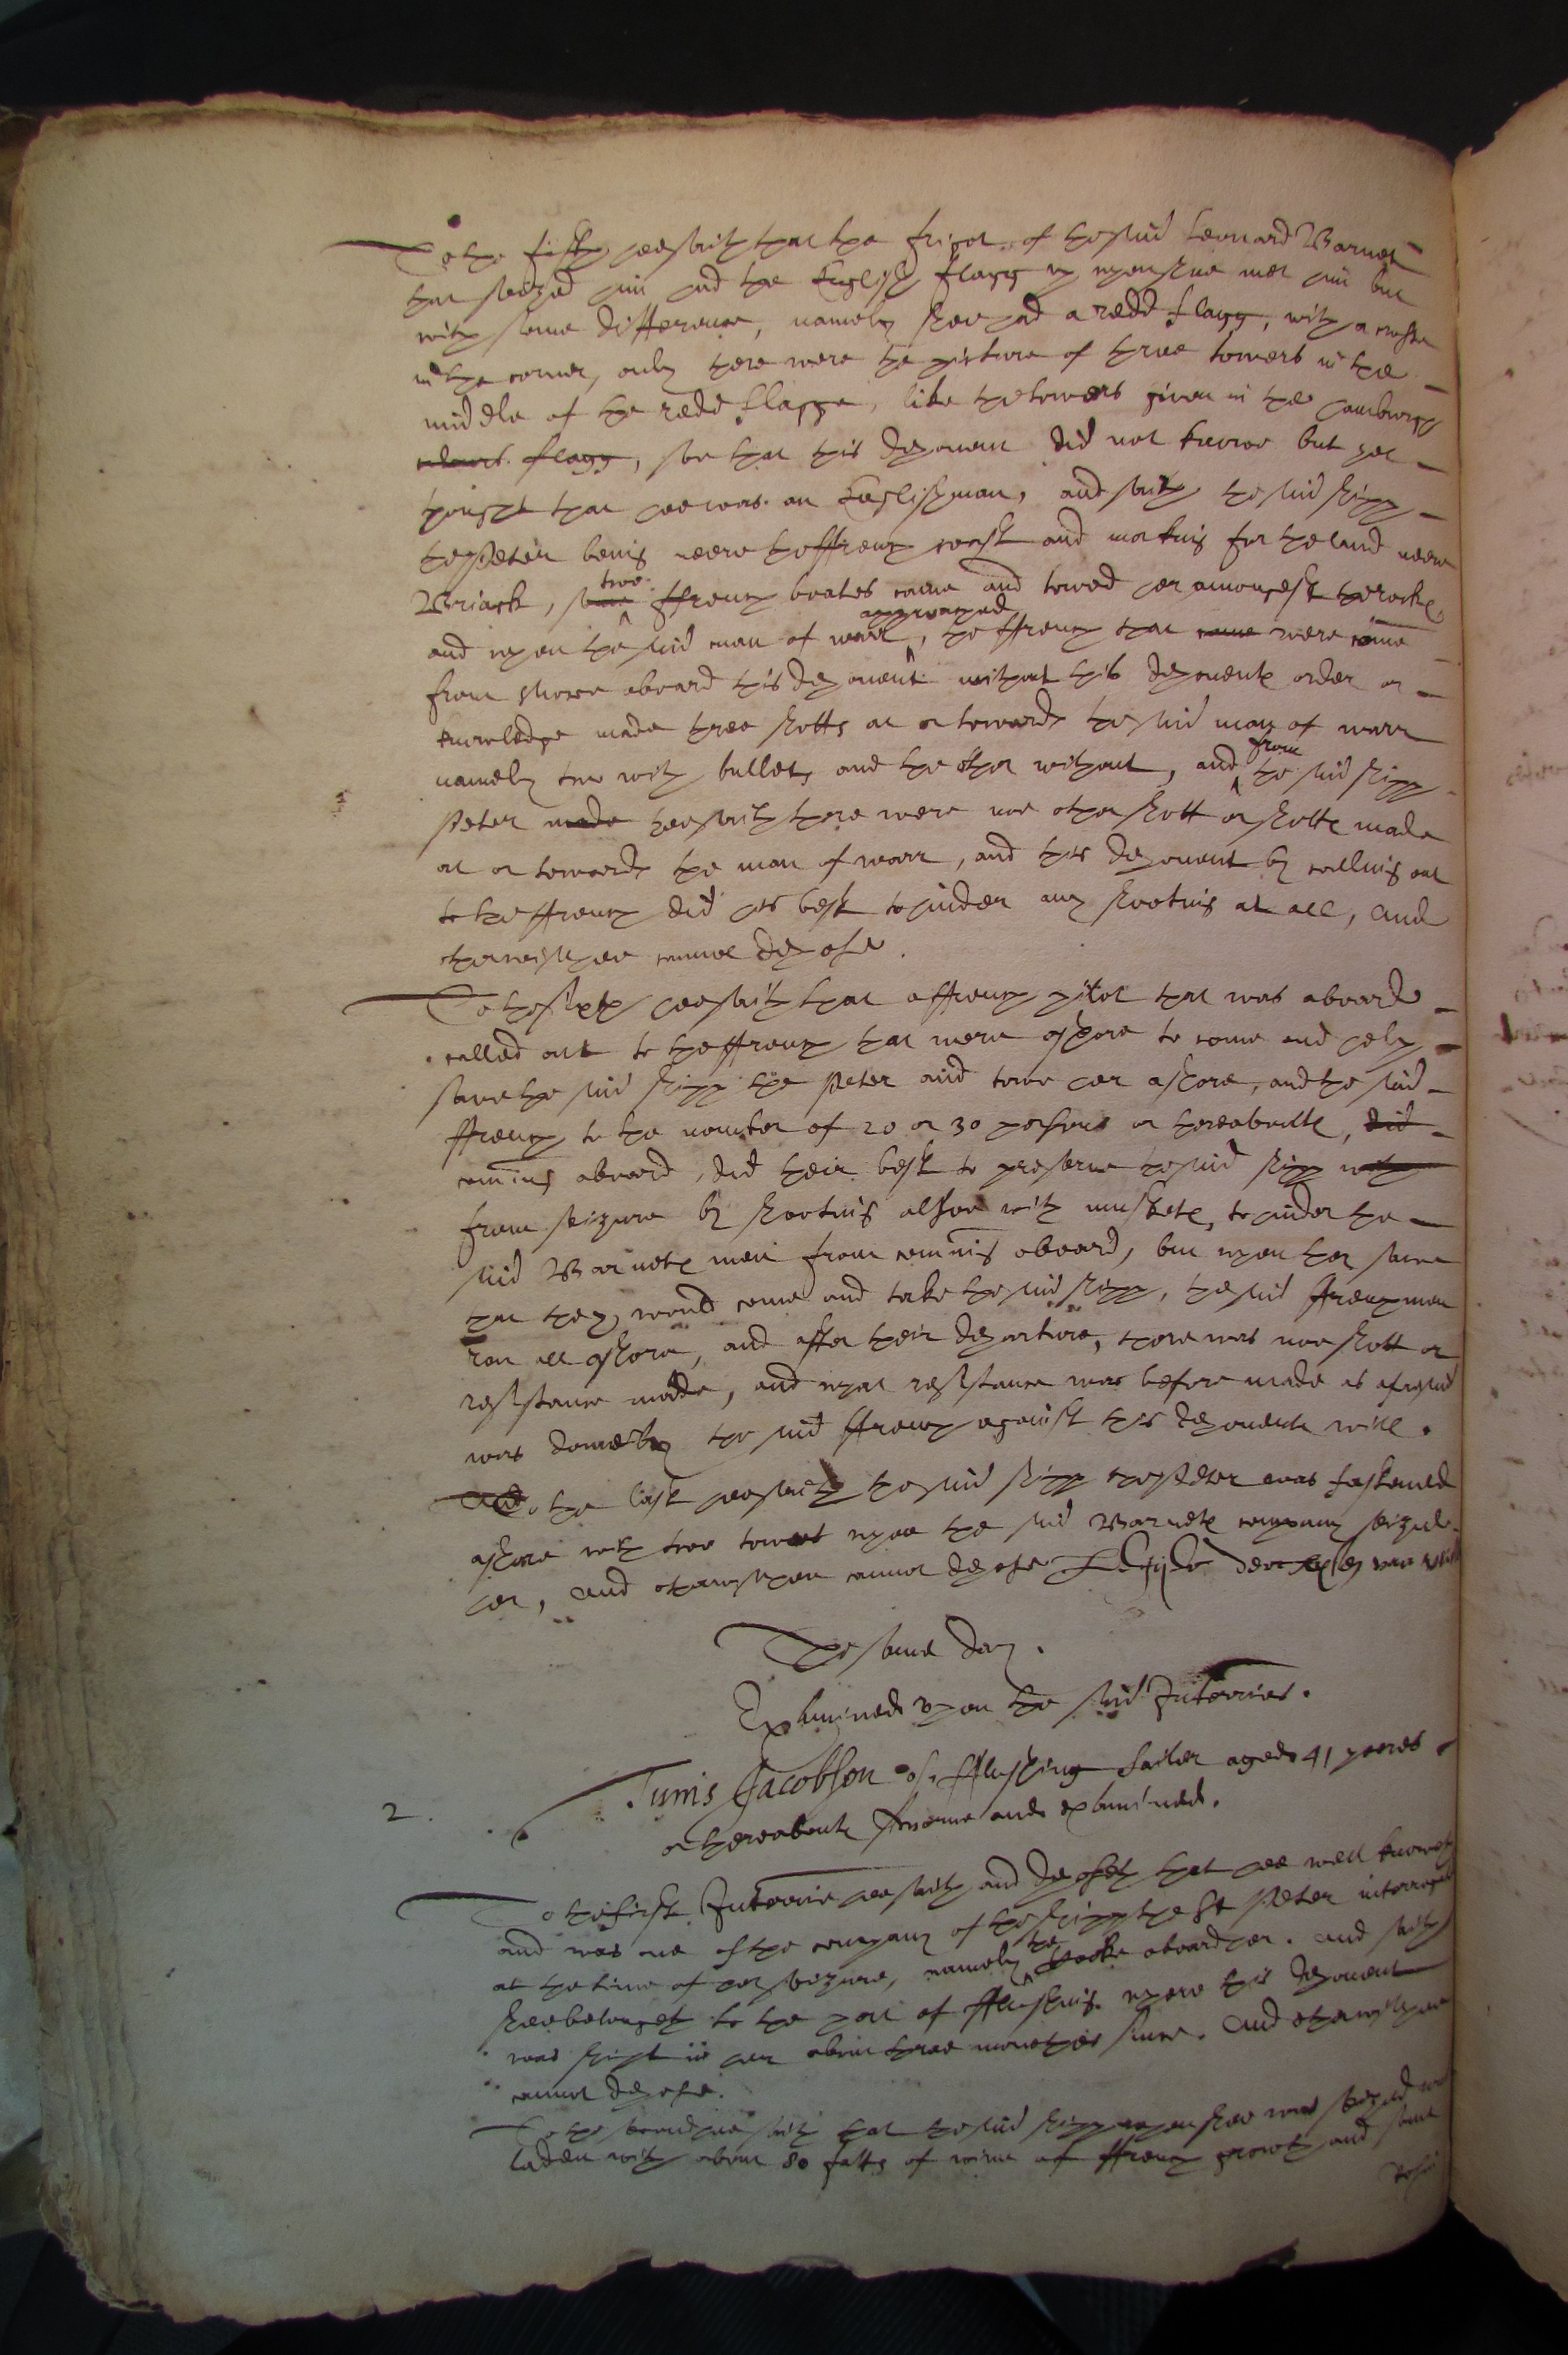 To the fifth hee saith that the frigot of the said Leonard Warnet
that seized him had the English flagg up when shee met him but
with some difference, namely shee had a redd flagg, with a crosse
in the corner, only there were the picture of three towers in the
middle of the redd flagge, like the towers given in the hamburgh
colours flagg, soe that this deponent did not knowe but yet
thought that hee was an Englishman, and saith the said shipp
the Peter being neere the ffrench coast and making for the land neere
Briack, some two ffrench boates came and towed her amongest the rocks,
and upon the said man of warr approached, the ffrench that came were come
from shore aboard this deponent without this deponents order or
knowledge made three shotts at or towards the said man of warr
namely two with bullets and the other without, and from the said shipp
Peter made hee saith there were noe other shott or shotts made
at or towards the man of warr, and this deponent by calling out
to the ffrench did his best to hinder any shooting at all, and
otherwise hee cannot depose.
To the sixth hee saith that a ffrench pilot that was aboard
called out to the ffrench that were ashore to come and help
save the said shipp the Peter and towe her ashore, and the said
ffrench to the number of 20 or 30 persons or thereabouts, did
coming aboard, did their best to preserve the said shipp with
from seizure by shooting alsoe with muskets, to hinder the
said Warnets men from coming aboard, but when they sawe
that they would come and take the said shipp, the said ffrenchmen
ran all ashore, and after their departure, there was noe shott or
resistance made, and what resistance was before made as aforesaid
was done by the said ffrench against this deponents will.
To the last hee saith the said shipp the Peter was fastened
ashore with two towes when the said Warnets company seized
her, and otherwise hee cannot depose
The same day.
Examined upon the said Interries.
2. Tunis Jacobson of fflushing Sailer aged 41 yeeres
or thereabouts sworne and examined.
To the first Interrie hee saith and deposeth that hee well knoweth
and was one of the company of the shipp the St Peter interrogate
at the time of her seizure, namely the Cooke aboard her. And saith
shee belongeth to the port of fflushing where this deponent
was shipt in her about three monethes since. And otherwise hee
cannot depose.
To the second hee saith that the said shipp when shee was seized was
laden with about 80 fatts of wine of ffrench growth and some